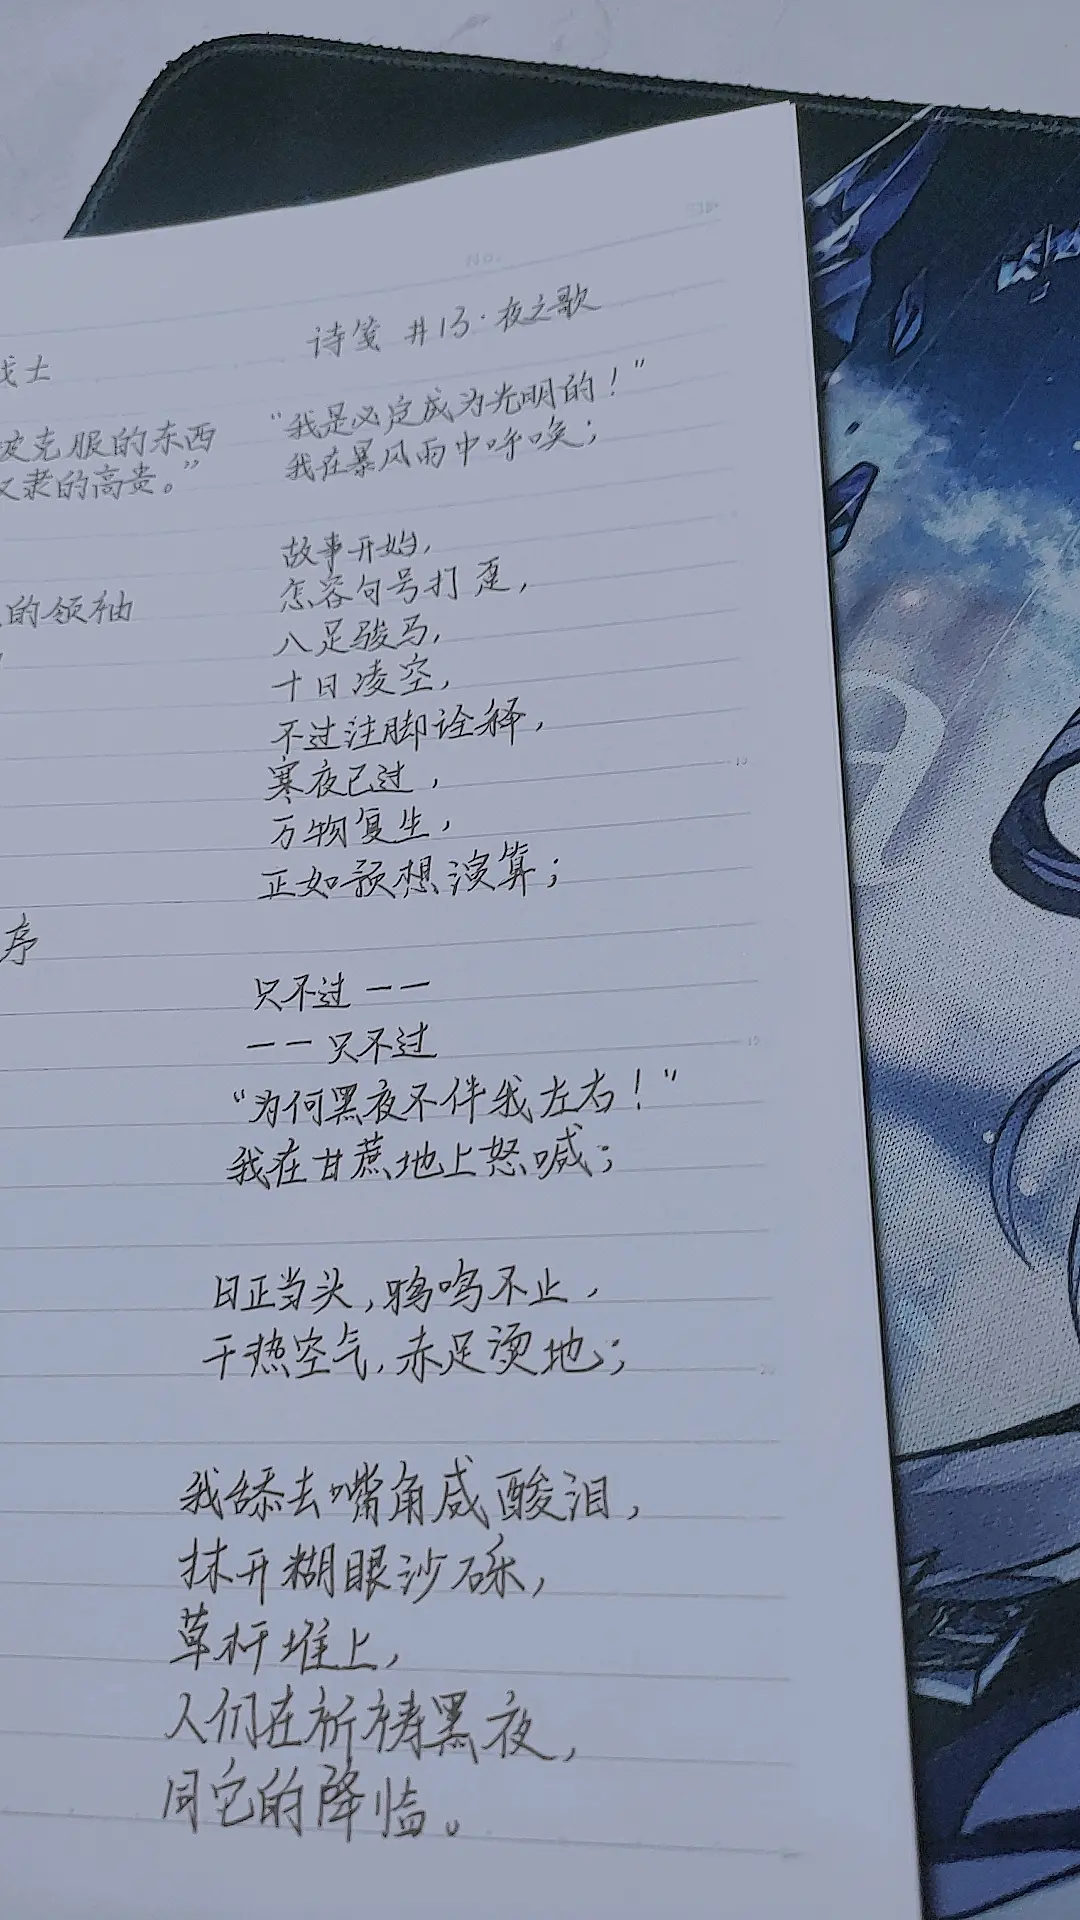 No.
战士
被克服的东西
又隶的高贵。”
的领袖
序
诗笺 #13·夜之歌
“我是必定成为光明的！”
我在暴风雨中呼唤；
故事开始，
怎容句号打歪，
八足骏马，
十日凌空，
不过注脚诠释，
寒夜已过，
万物复生，
正如预想演算；
只不过——
——只不过
“为何黑夜不伴我左右！”
我在甘蔗地上怒喊；
日正当头，鸦鸣不止，
干热空气，赤足烫地；
我舔去嘴角咸酸泪，
抹开糊眼沙砾，
草杆堆上，
人们在祈祷黑夜，
同它的降临。
10
15
20